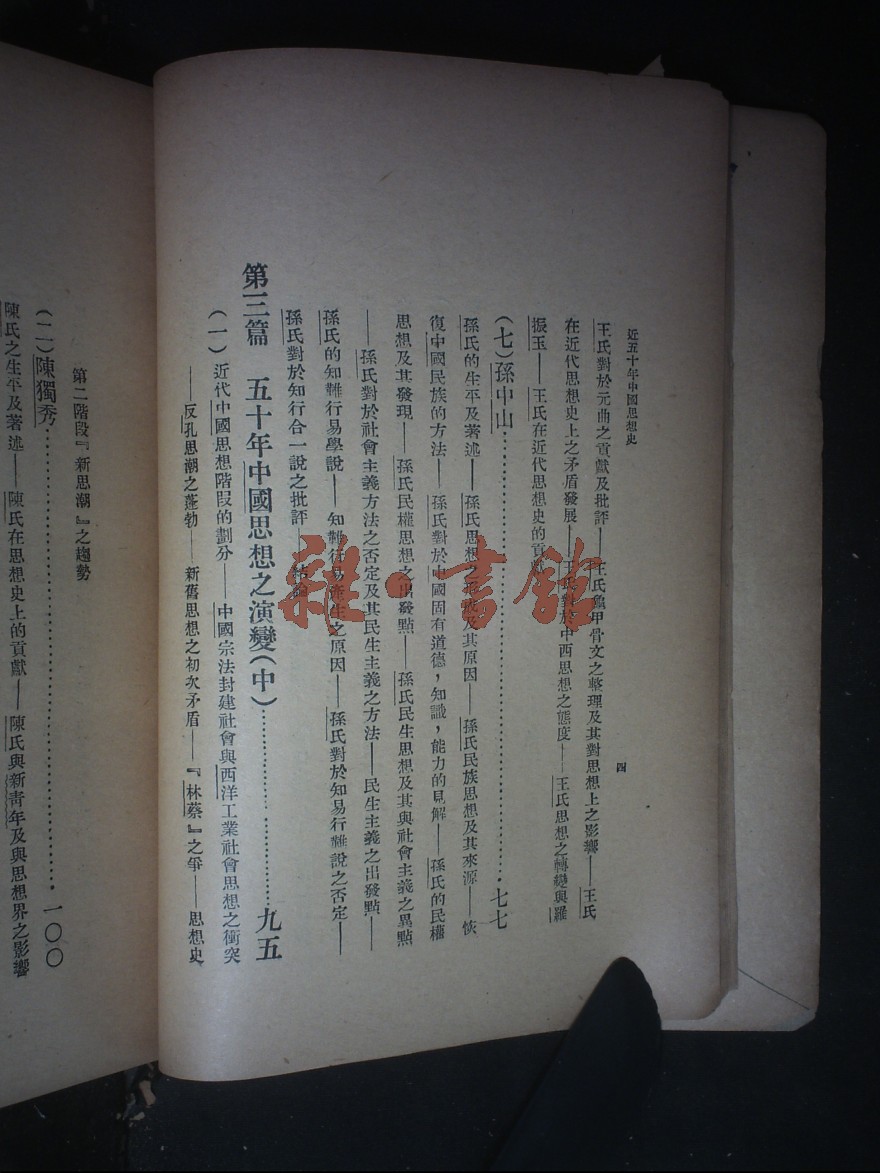 近五十年中國思想史
四
王氏對於元曲之貢獻及批評——王氏龜甲骨文之整理及其對思想上之影響——王氏
在近代思想史上之矛盾發展——王氏對於中西思想之態度——王氏思想之轉變與羅
振玉——王氏在近代思想史的貢獻
(七)孫中山……七七
孫氏的生平及著述——孫氏思想之形成及其原因——孫氏民族思想及其來源——恢
復中國民族的方法——孫氏對於中國固有道德,知識,能力的見解——孫氏的民權
思想及其發現——孫氏民權思想之出發點——孫氏民生思想及其與社會主義之異點
——孫氏對於社會主義方法之否定及其民生主義之方法——民生主義之出發點——
孫氏的知難行易學說——知難行易產生之原因——孫氏對於知易行難說之否定——
孫氏對於知行合一說之批評——結論
第三篇 五十年中國思想之演變(中)……九五
(一)近代中國思想階段的劃分——中國宗法封建社會與西洋工業社會思想之衝突
——反孔思潮之蓬勃——新舊思想之初次矛盾——『林蔡』之爭——思想史
第二階段『新思潮』之趨勢
(二)陳獨秀……一〇〇
陳氏之生平及著述——陳氏在思想史上的貢獻——陳氏與新青年及與思想界之影響
雜·書館